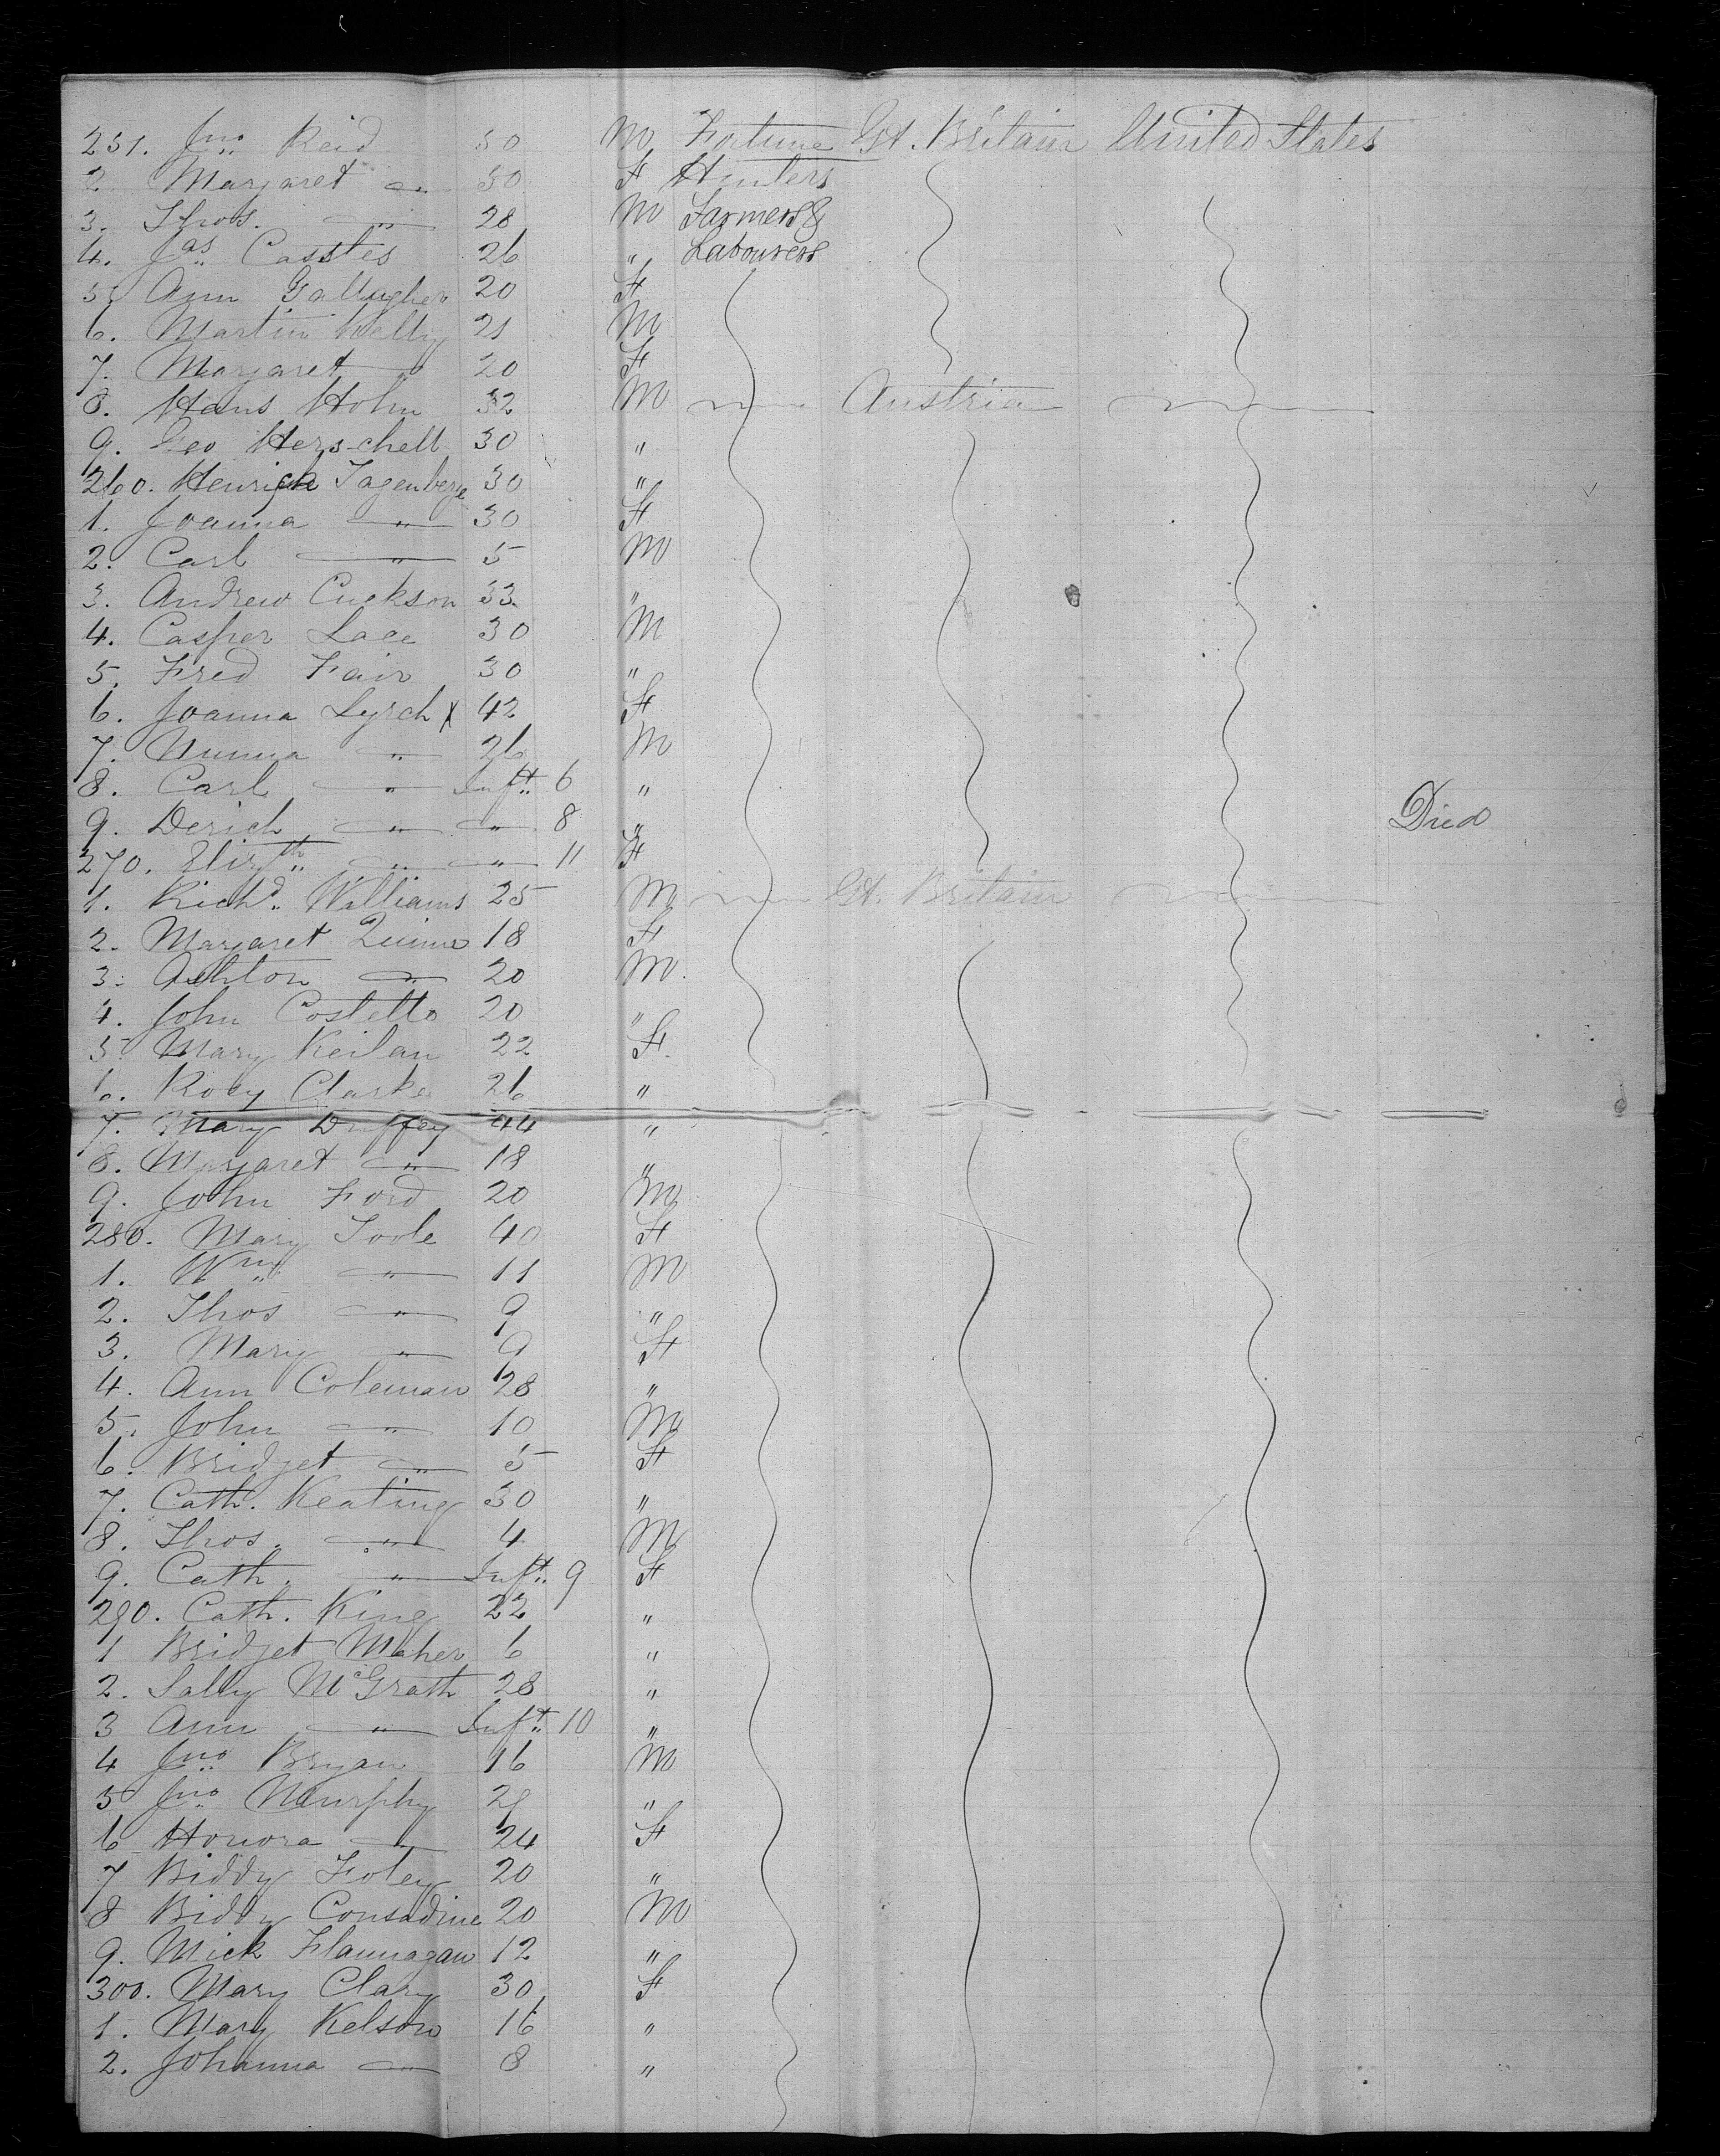 251. Jno. Reid 50 M Fortune Gt. Britain United States
2 Margaret " 50 F Hunters
3. Thos. " 28 M Farmers &
4. Jas. Casstles 26 " Labourers
5. Ann Gallagher 20 F
6. Martin Kelly 21 M
7. Margaret " 20 F
8. Hans Hohn 32 M " Austria "
9. Geo Herschell 30 "
260. Henrich Tagenberge 30 "
1. Joanna " 30 F
2. Carl " 5 M
3. Andrew Cuckson 33 "
4. Casper Lace 30 M
5. Fred Fair 30 "
6. Joanna Lyrch X 42 F
7. " 26 M
8. Carl " Inft. 6 "
9. Derich " " 8 " Died
270. Elizth. " " 11 F
1. Richd. Williams 25 M " Gt. Britain "
2. Margaret Quinn 18 F
3. Ashton " 20 M.
4. John Costello 20 "
5. Mary Keilan 22 F.
6. Rosy Clarke 26 "
7. Mary Duffey 44 "
8. Margaret " 18 "
9. John Ford 20 M
280. Mary Toole 40 F
1. Wm. " 11 M
2. Thos " 9 "
3. Mary " 9 F
4. Ann Coleman 28 "
5. John " 10 M
6. Bridget " 5 F
7. Cath. Keating 30 "
8. Thos. " 4 M
9. Cath. " Inft. 9 F
290. Cath. King 22 "
1 Bridget Maher 6 "
2. Sally McGrath 28 "
3 Ann " Inft. 10 "
4 Jno. Bryan 16 M
5 Jno. Murphy 29 "
6 Honora " 24 F
7 Biddy Foley 20 "
8 Biddy Consadine 20 M
9. Mick Flannagan 12 "
300. Mary Clary 30 F
1. Mary Kelson 16 "
2. Johanna " 8 "